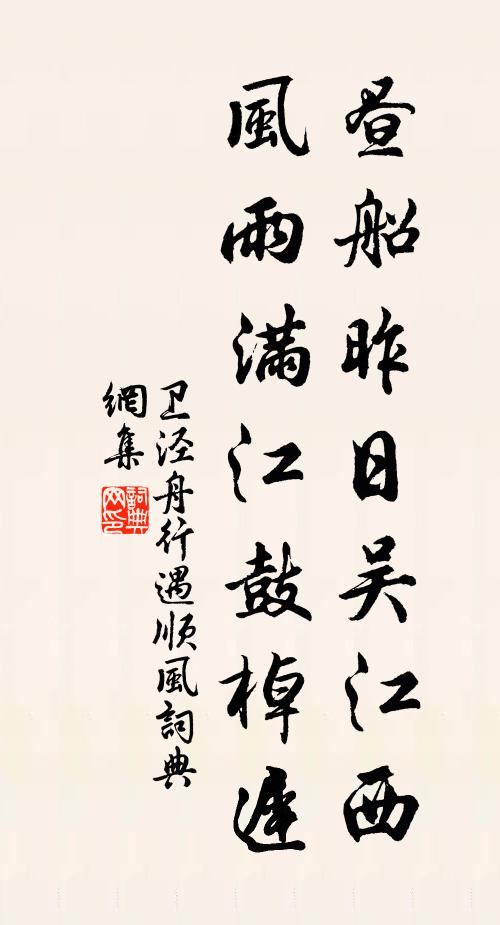 昼船昨日吴江西
風雨满江鼓棹遲
卫泾舟行遇顺風詞典
網集
詞典
网印